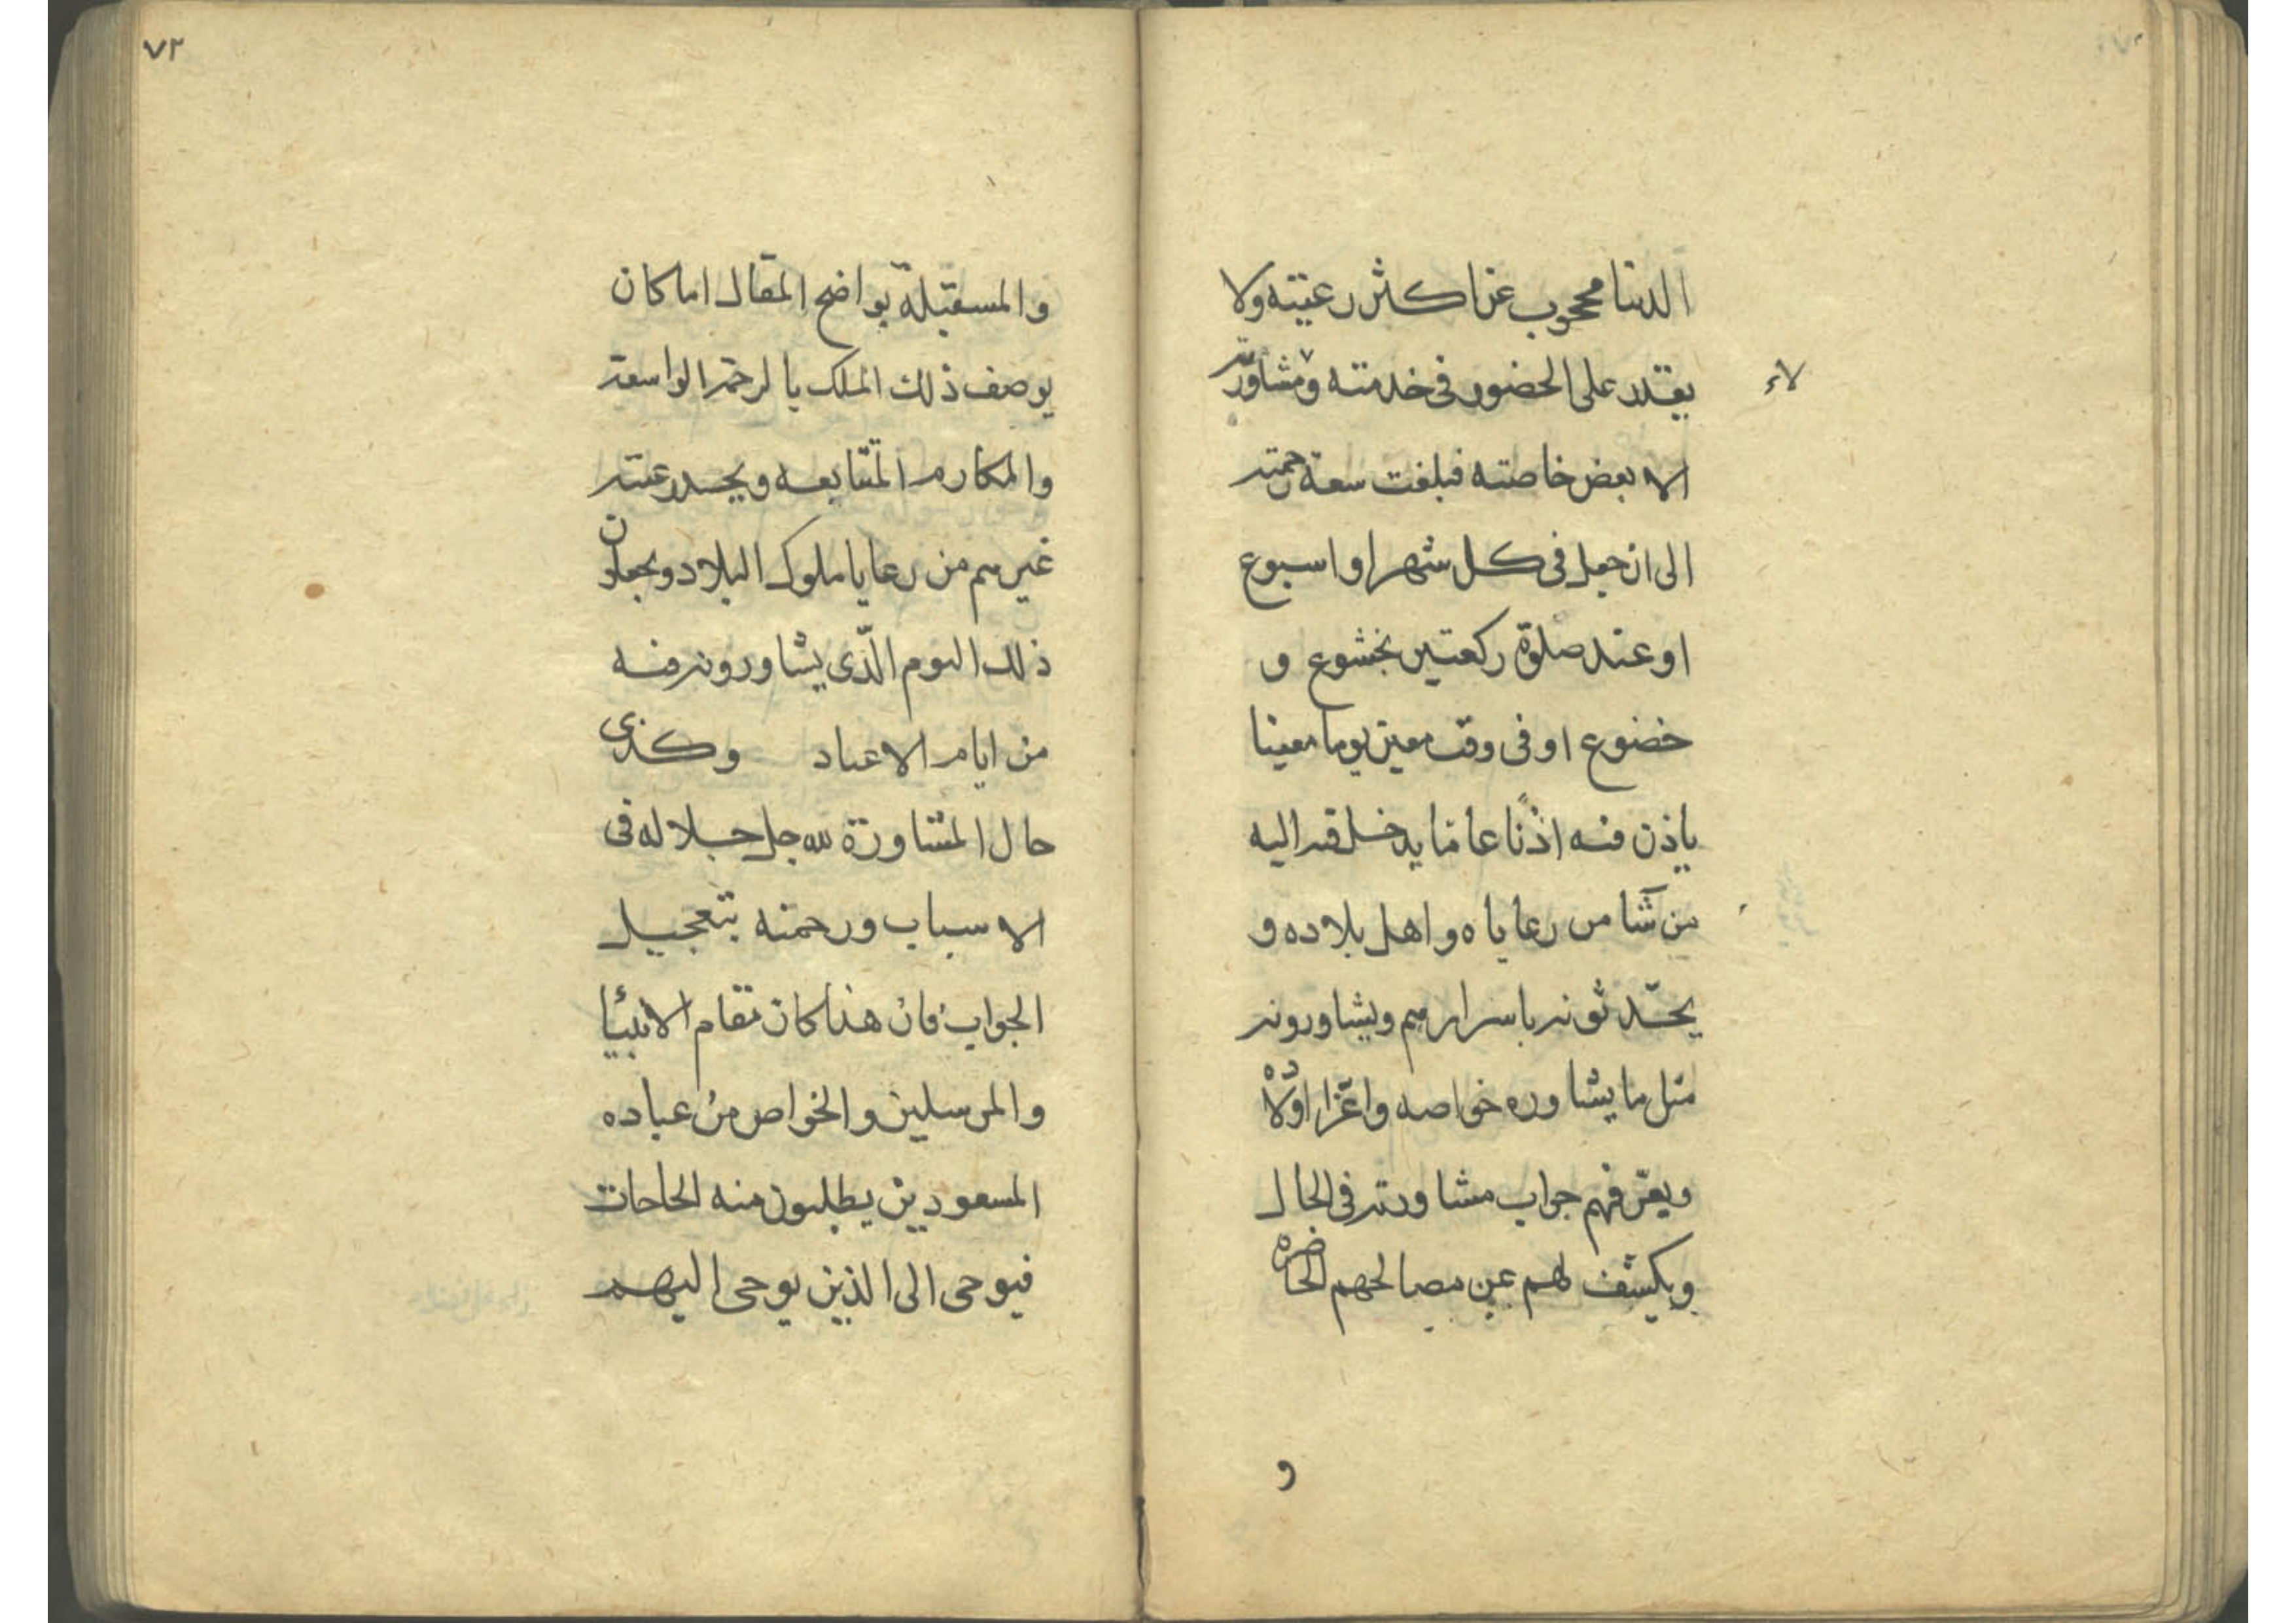 الدنيا محجوب عن اكثر رعيته ولا
يقدر على الحضور فى خدمته ومشاورته
لاء
الا بعض خاصته فبلغت سعة رحمته
الى ان جعل فى كل شهر او اسبوع
او عند صلوة ركعتين بخشوع و
خضوع او فى وقت معين يوما معينا
ياذن فيه اذنًا عامّا يدخل فيه اليه
من شآء من رعاياه واهل بلاده و
يحدّثونه باسرارهم ويشاورونه
مثل ما يشاوره خواصه واعزّ اولاده
ويعرّفهم جواب مشاورته فى الحال
ويكشف لهم عن مصالحهم الحاضرة
و
٧٢
والمستقبلة بواضح المقال اما كان
يوصف ذلك الملك بالرحمة الواسعة
والمكارم المتتابعه ويحسد رعيته
غيرهم من رعايا ملوك البلاد ويجعلون
ذلك اليوم الّذى يشاورونه فيه
من ايام الاعياد وكذى
حال المشاورة لله جل جلاله فى
الاسباب ورحمته بتعجيل
الجواب فان هذا كان مقام الانبيأ
والمرسلين والخواص من عباده
المسعودين يطلبون منه الحاجات
فيوحى الى الذين يوحى اليهم